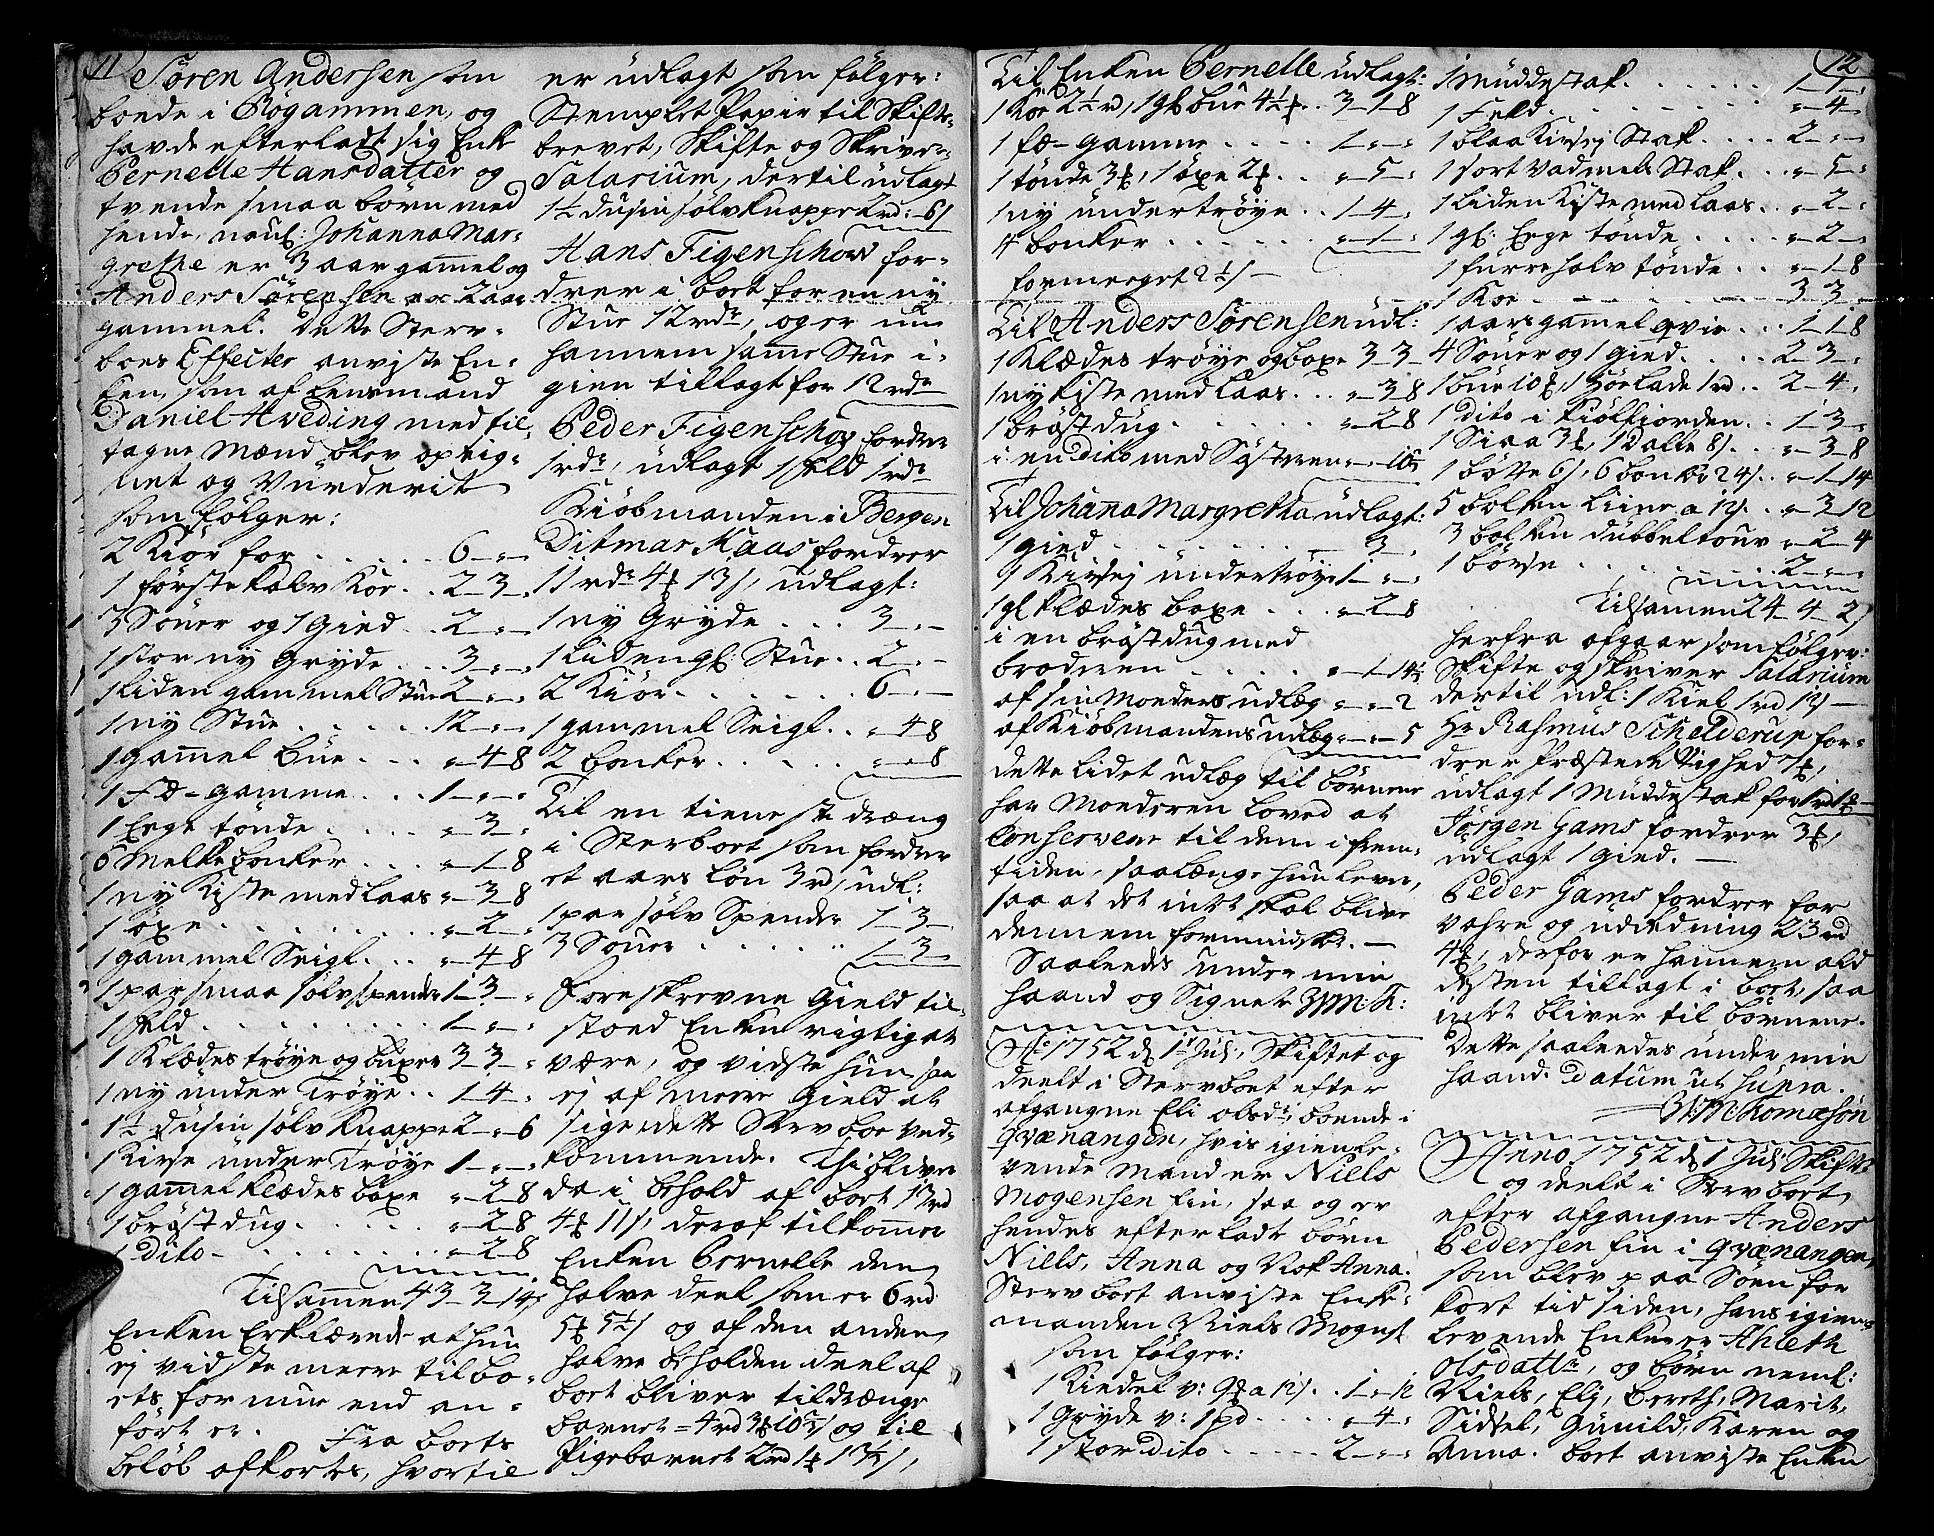 11
Søren Andersen som
boede i Rögammen, og
havde efterladt sig Enke
Pernelle Hansdatter og
tvende smaa børn med
hende, navnl: Johanna Mar-
grethe er 3 aar gamel og
Anders Sørensen er 2 aar
gammel. Dette Sterv-
boes Effecter anviste En-
ken, som af Lensmand
Daniel Hveding med til-
tagne Mænd blev opteig-
net og Vurderit
som følger:
2 Kiör for . . . . . 6 - " -
1 første kalv Koe . . 2 - 3 -
3 Souer og 1 Gied . . 2 - " -
1 stor ny Gryde . . . 3 - " -
1 liden gammel Stue 2 - " -
1 ny Stue . . . . . 12 - " -
1 gamel bue . . . . " - 4 - 8
1 Fæ-gamme . . . 1 - " -
1 Ege tönde . . . . " - 3 -
6 Melkebonker . . . " - 1 - 8
1 ny Kiste med laas " - 3 - 8
1 öxe . . . . . . . " - 2 -
1 gammel Seigl . . . " - 4 - 8
1 par smaa sölvspender 1 - 3 -
1 Feld . . . . . . . 1 - " -
1 Klædes tröye og buxer 3 - 3 -
1 ny under Tröye . . 1 - 4 -
1½ dusin sölv knapper 2 - " - 6
1 Kirse under Tröye 1 - " -
1 gamel klædes boxe " - 2 - 8
1 bröstdug . . . . . " - 2 - 8
1 dito - . . . . . . " - 2 - 8
Tilsamen 43 - 3 - 14 ß
Enken Erklærede at hun
ej vidste meere til bo-
ets formue end an-
fört er. Fra boets
beløb afkortes, hvortil
er udlagt som følger:
Stemplet Papir til Skifte-
brevet, Skifte og Skriver-
Salarium, dertil udlagt
1½ dusin sölv knapper 2 rd: 6 ß
Hans Figenschow for-
drer i boet for en ny
Stue 12 rdr, og er nu
hannem samme Stue i-
gien tillagt for 12 rdr
Peder Figenschov fordrer
1 rdr, udlagt 1 Feld 1 rdr
Kiøbmanden i Bergen
Ditmar Kaas fordrer
11 rdr 4 13 ß, udlagt:
1 ny Gryde . . . 3 - " -
1 liden gl: Stue . . 2 - " -
2 Kiör . . . . . . . 6 - " -
1 gammel Seigl . . " - 4 - 8
2 bonker . . . . . " - " - 8
Til en tieneste dræng
i Sterboet som fordrer
et aars lön 3 rd, udl:
1 par sölv Spender 1 - 3 -
3 Souer . . . . . . 1 - 3 -
Foreskrevne Gield til-
stoed Enken rigtig at
være, og vidste hun saa
ej af meere Gield at
sige dette Stervboe ved-
kommende. Thi bliver
da i behold af boet 13 rd
4 11 ß, deraf tilkomer
Enken Pernelle den
halve deel som er 6 rd
5 5½ ß og af den anden
halve beholden deel af
boet bliver tildrænge
barnet = 4 rd 3 10 ß og til
Pigebarnet 2 rd 1 13 ß,
Til Enken Pernelle udlagt:
1 Koe 2½ rd, 1 gl bue 4½ . . 3 - 1 - 8
1 fæ-gamme . . . . . 1 - " -
1 tönde 3, 1 öxe 2 . . " - 5 -
1 ny undertröye . . 1 - 4 -
4 bonker . . . . . . " - 1 -
for meeget 2½ ß -
Til Anders Sørensen udl:
1 Klædes tröye og boxe 3 - 3 -
1 ny kiste med laas . . . " - 3 - 8
1 bröstdug . . . . . " - 2 - 8
i en dito med Systeren " - " - 10
Til Johana Margretha udlagt:
1 gied . . . . . . . " - 3 -
1 Kirsej undertröye 1 - " -
1 gl klædes boxe . . . " - 2 - 8
i en bröstdug med
broderen . . . . . . " - 1 - 14
af sin Moders udlæg " - " - 2
af Kiöbmandens udlæg " - " - 5
dette lidet udlæg til börnene
har Moederen loved at
Conservere til dem i frem-
tiden, saalænge hun lever,
saa at det intet skal blive
dennem formindsket. -
Saaleedes under min
haand og Signet
Ao 1752 d 1 Juli, Skiftet og
deelt i Stervboet efter
afgangne Eli Olsdr, boende i
Qvænangen, hvis igienle-
vende Mand er Niels
Mogensen fin, saa og er
hendes efterladte börn
Niels, Anna og Nok Anna.
Stervboet anviste Enke-
manden Niels Mogens:
som følger:
1 Kiedel v: 9 a 12 ß . . 1 - " - 12
1 Gryde v: 1 pd . . . . " - 4 -
1 stor dito . . . . . 2 - " -
12
1 Muddestak . . . . . . 1 - 1 -
1 Feld . . . . . . . . " - 4 -
1 blaa Kirsej Stak . . . . 2 - " -
1 sort Vadmels Stak . . . " - 5 -
1 liden Kiste med laas . . " - 2 -
1 gl: Ege tönde . . . . " - 2 -
1 furre halv tönde . . " - 1 - 8
1 Koe - - - - - - - 3 - 3 -
1 aars gamel qvie . . . 1 - 1 - 8
4 Souer og 1 Gied . . . . 2 - 3 -
1 bue 10, 1 Hörlade 1 rd . . 2 - 4 -
1 dito i Kiölfiorden . . 1 - 3 -
1 Siaa 3, 1 balle 8 ß . . " - 3 - 8
1 bötte 6 ß, 6 bonker 24 ß . . " - 1 - 14
5 bolken Liiner a 12 ß . . " - 3 - 12
3 bolken dubbeltouv " - 2 - 4
1 börse . . . . . . . 2 - " -
Tilsamen 24 - 4 - 2 ß
herfra afgaar som følger:
Skifte og Skriver Salarium
dertil udl: 1 Kiel 1 rd 12 ß -
Hr Rasmus Schelderup for-
drer Præstens Rettighed,
udlagt 1 Muddestak for 1 rd 1 -
Jørgen Gams fordrer 3,
udlagt 1 Gied. -
Peder Gams fordrer for
vahre og udredning 23 rd
4, derfor er hannem ald
resten tillagt i boet, saa
intet bliver til börnene.
Dette saaleedes under min
haand. Datum ut supra.
Thomæsön
Anno 1752 d 1 Juli Skiftet
og deelt i Stervboet
efter afgangne Anders
Pedersen fin i Qvænangen,
som blev paa Söen for
kort tid siden, hans igien-
levende Enke er Ahleth
Olsdattr, og börn neml:
Niels, Eli, Bereth, Marit,
Sidsel, Gunild, Karen og
Anna. boet anviste Enken